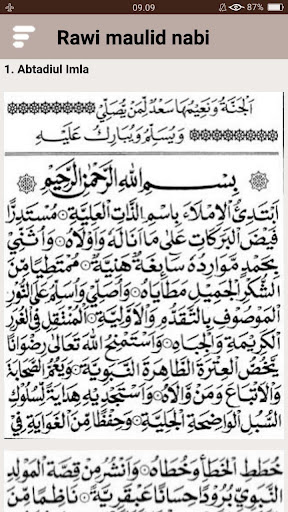 09.09
89%
Rawi maulid nabi
1. Abtadiul Imla
الْجَنَّةُ وَنَعِيمُهَا سَعْدٌ لِمَنْ يُصَلِّي
وَيُسَلِّمُ وَيُبَارِكُ عَلَيْهِ
بِسْمِ اللهِ الرَّحْمٰنِ الرَّحِيْمِ
اَبْتَدِئُ الْإِمْلَاءَ بِاسْمِ الذَّاتِ الْعَلِيَّةِ۞ مُسْتَدِرًّا
فَيْضَ الْبَرَكَاتِ عَلَى مَا أَنَالَهُ وَأَوْلَاهُ۞ وَأُثَنِّي
بِحَمْدٍ مَوَارِدُهُ سَائِغَةٌ هَنِيَّةٌ۞ مُمْتَطِيًا مِنَ
الشُّكْرِ الْجَمِيلِ مَطَايَاهُ۞ وَأُصَلِّي وَأُسَلِّمُ عَلَى النُّورِ
الْمَوْصُوفِ بِالتَّقَدُّمِ وَالْأَوَّلِيَّةِ۞ الْمُنْتَقِلِ فِي الْغُرَرِ
الْكَرِيمَةِ وَالْجِبَاهِ۞ وَأَسْتَمْنِحُ اللهَ تَعَالَى رِضْوَانًا
يَخُصُّ الْعِتْرَةَ الطَّاهِرَةَ النَّبَوِيَّةَ۞ وَيَعُمُّ الصَّحَابَةَ
وَالْأَتْبَاعَ وَمَنْ وَالَاهُ۞ وَأَسْتَجْدِيهِ هِدَايَةً لِسُلُوكِ
السُّبُلِ الْوَاضِحَةِ الْجَلِيَّةِ۞ وَحِفْظًا مِنَ الْغَوَايَةِ فِي
خُطَطِ الْخَطَأِ وَخُطَاهُ۞ وَأَنْشُرُ مِنْ قِصَّةِ الْمَوْلِدِ
النَّبَوِيِّ بُرُودًا حِسَانًا عَبْقَرِيَّةً۞ نَاظِمًا مِنَ